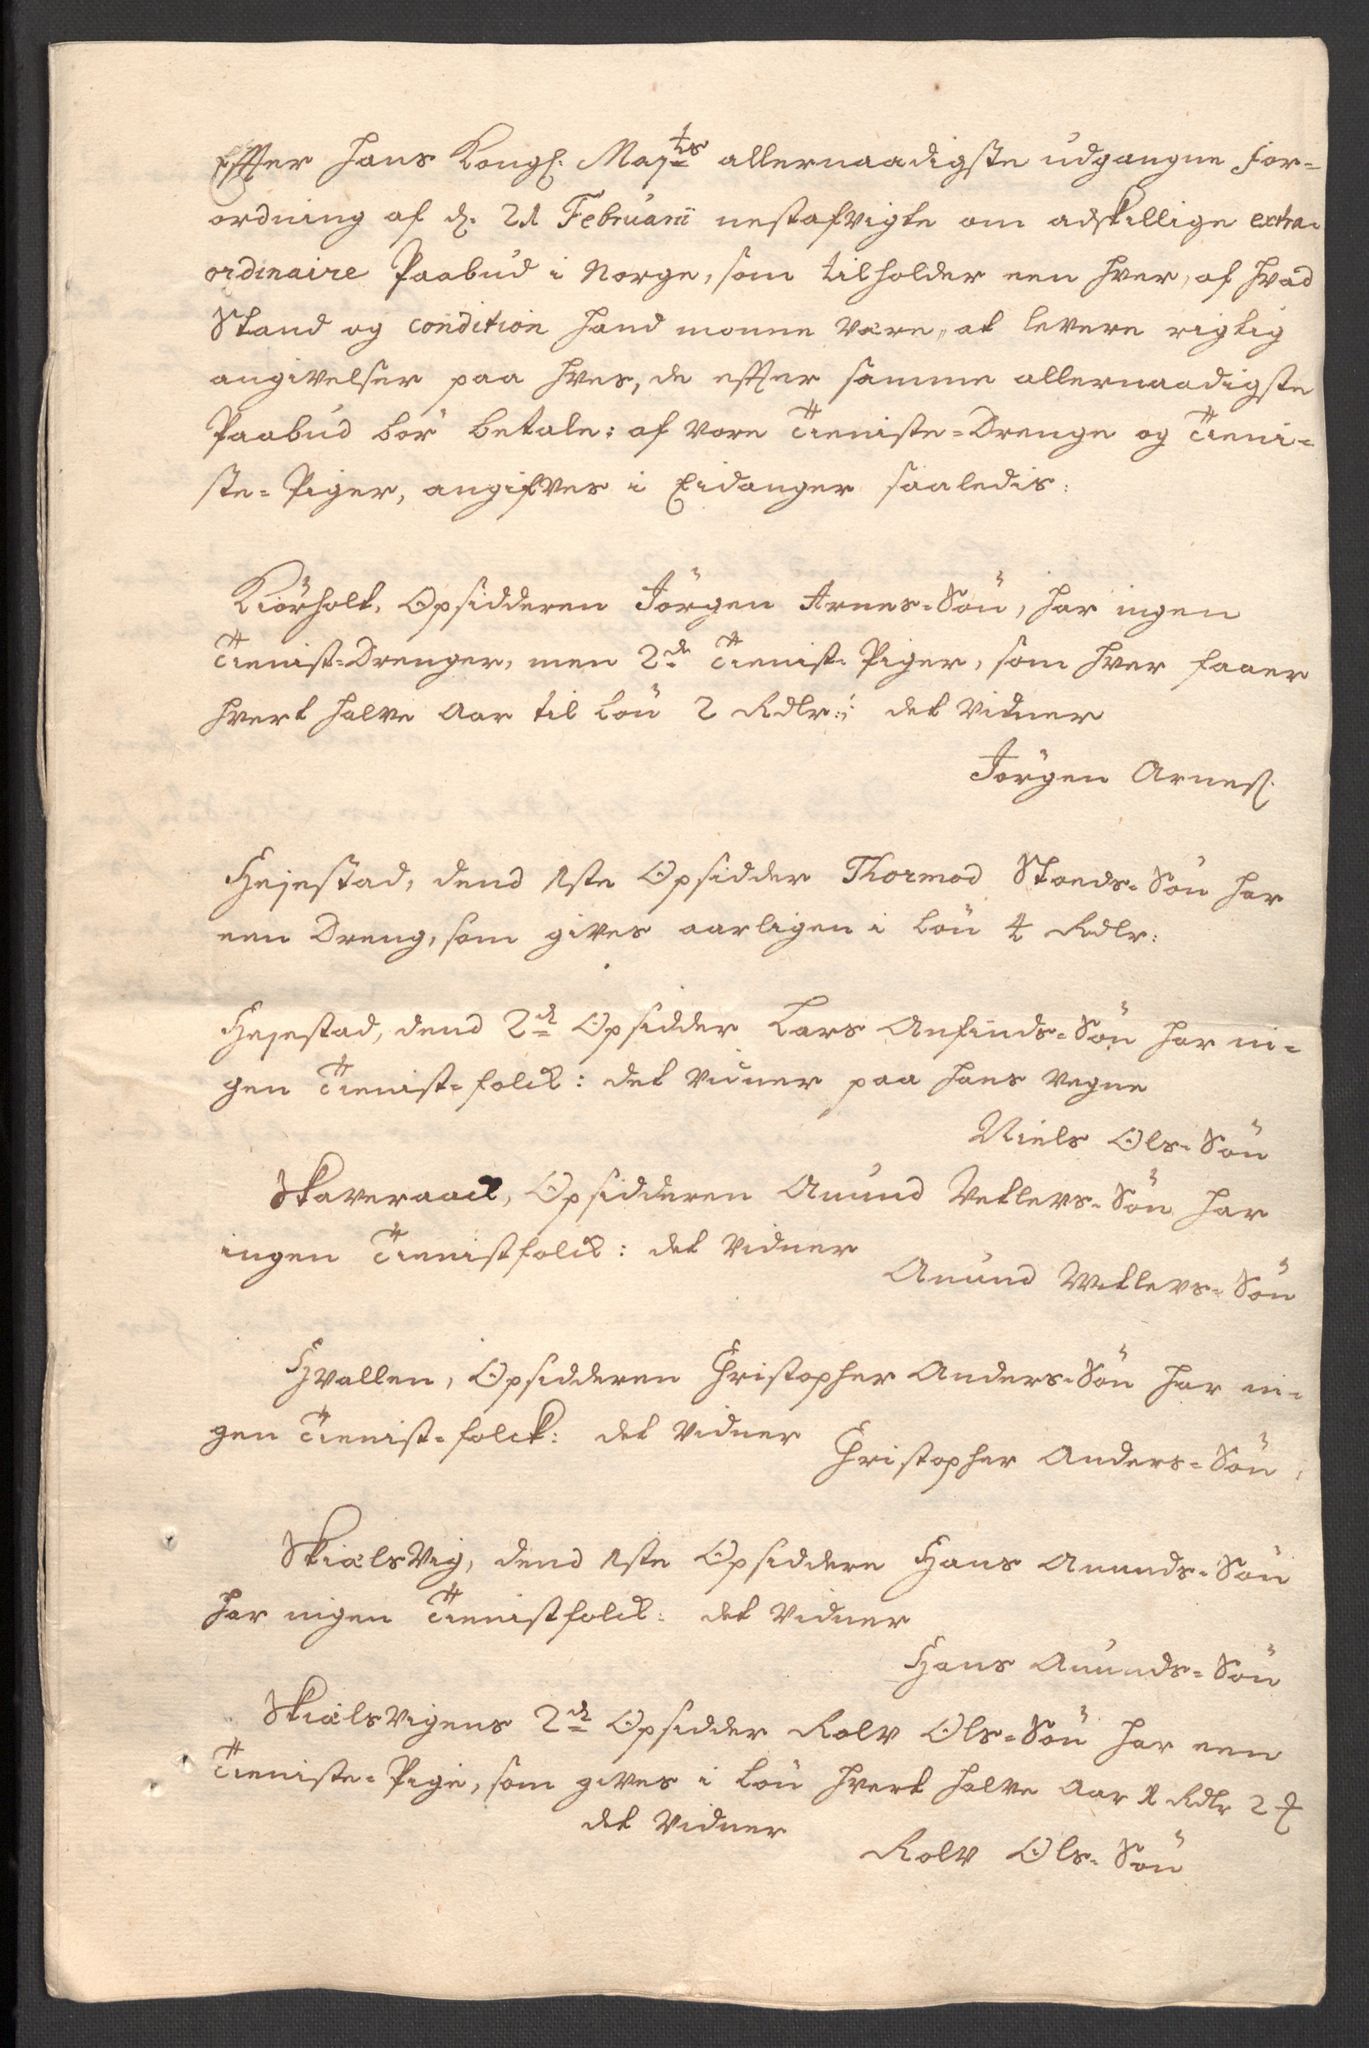 Effter Hans Kongl. Maj:ts allernaadigste udgangne For-
ordning af d. 21 Februarii nestafvigte om adskillige extra-
ordinaire Paabud i Norge, som tilholder een hver, af hvad
Stand og condition hand monne være, at levere rigtig
angivelser paa hves, de effter samme allernaadigste
Paabud bör betale: af vore Tieniste-Drenge og Tieni-
ste-Piger, angifves i Eidanger saaledis:
Kiörholt, Opsidderen Jörgen Arnes-Sön, har ingen
Tienist-Drenger, men 2de Tienist-Piger, som hver faaer
hvert halve Aar til Lön 2 Rdlr: det vidner
Jörgen Arness.
Hejestad, dend 1ste Opsidder Thormod Stoeds-Sön har
een Dreng, som gives aarligen i Lön 4 Rdlr:
Hejestad, dend 2d Opsidder Lars Anfinds-Sön har in-
gen Tienist-folck: det vidner paa hans vegne
Niels Ols-Sön
Skaveraack, Opsidderen Anund Vetlevs-Sön har
ingen Tienistfolck: det vidner
Anund Vetlevs-Sön
Hvallen, Opsidderen Christopher Anders-Sön har in-
gen Tienist-folck: det vidner
Christopher Anders-Sön
Skiælsvig, dend 1ste Opsiddere Hans Anunds-Sön
har ingen Tienistfolck: det vidner
Hans Anunds-Sön
Skiælsvigens 2d Opsidder Rolv Ols-Sön har een
Tieniste-Pige, som gives i Lön hvert halve Aar 1 Rdlr 2
det vidner
Rolv Ols-Sön